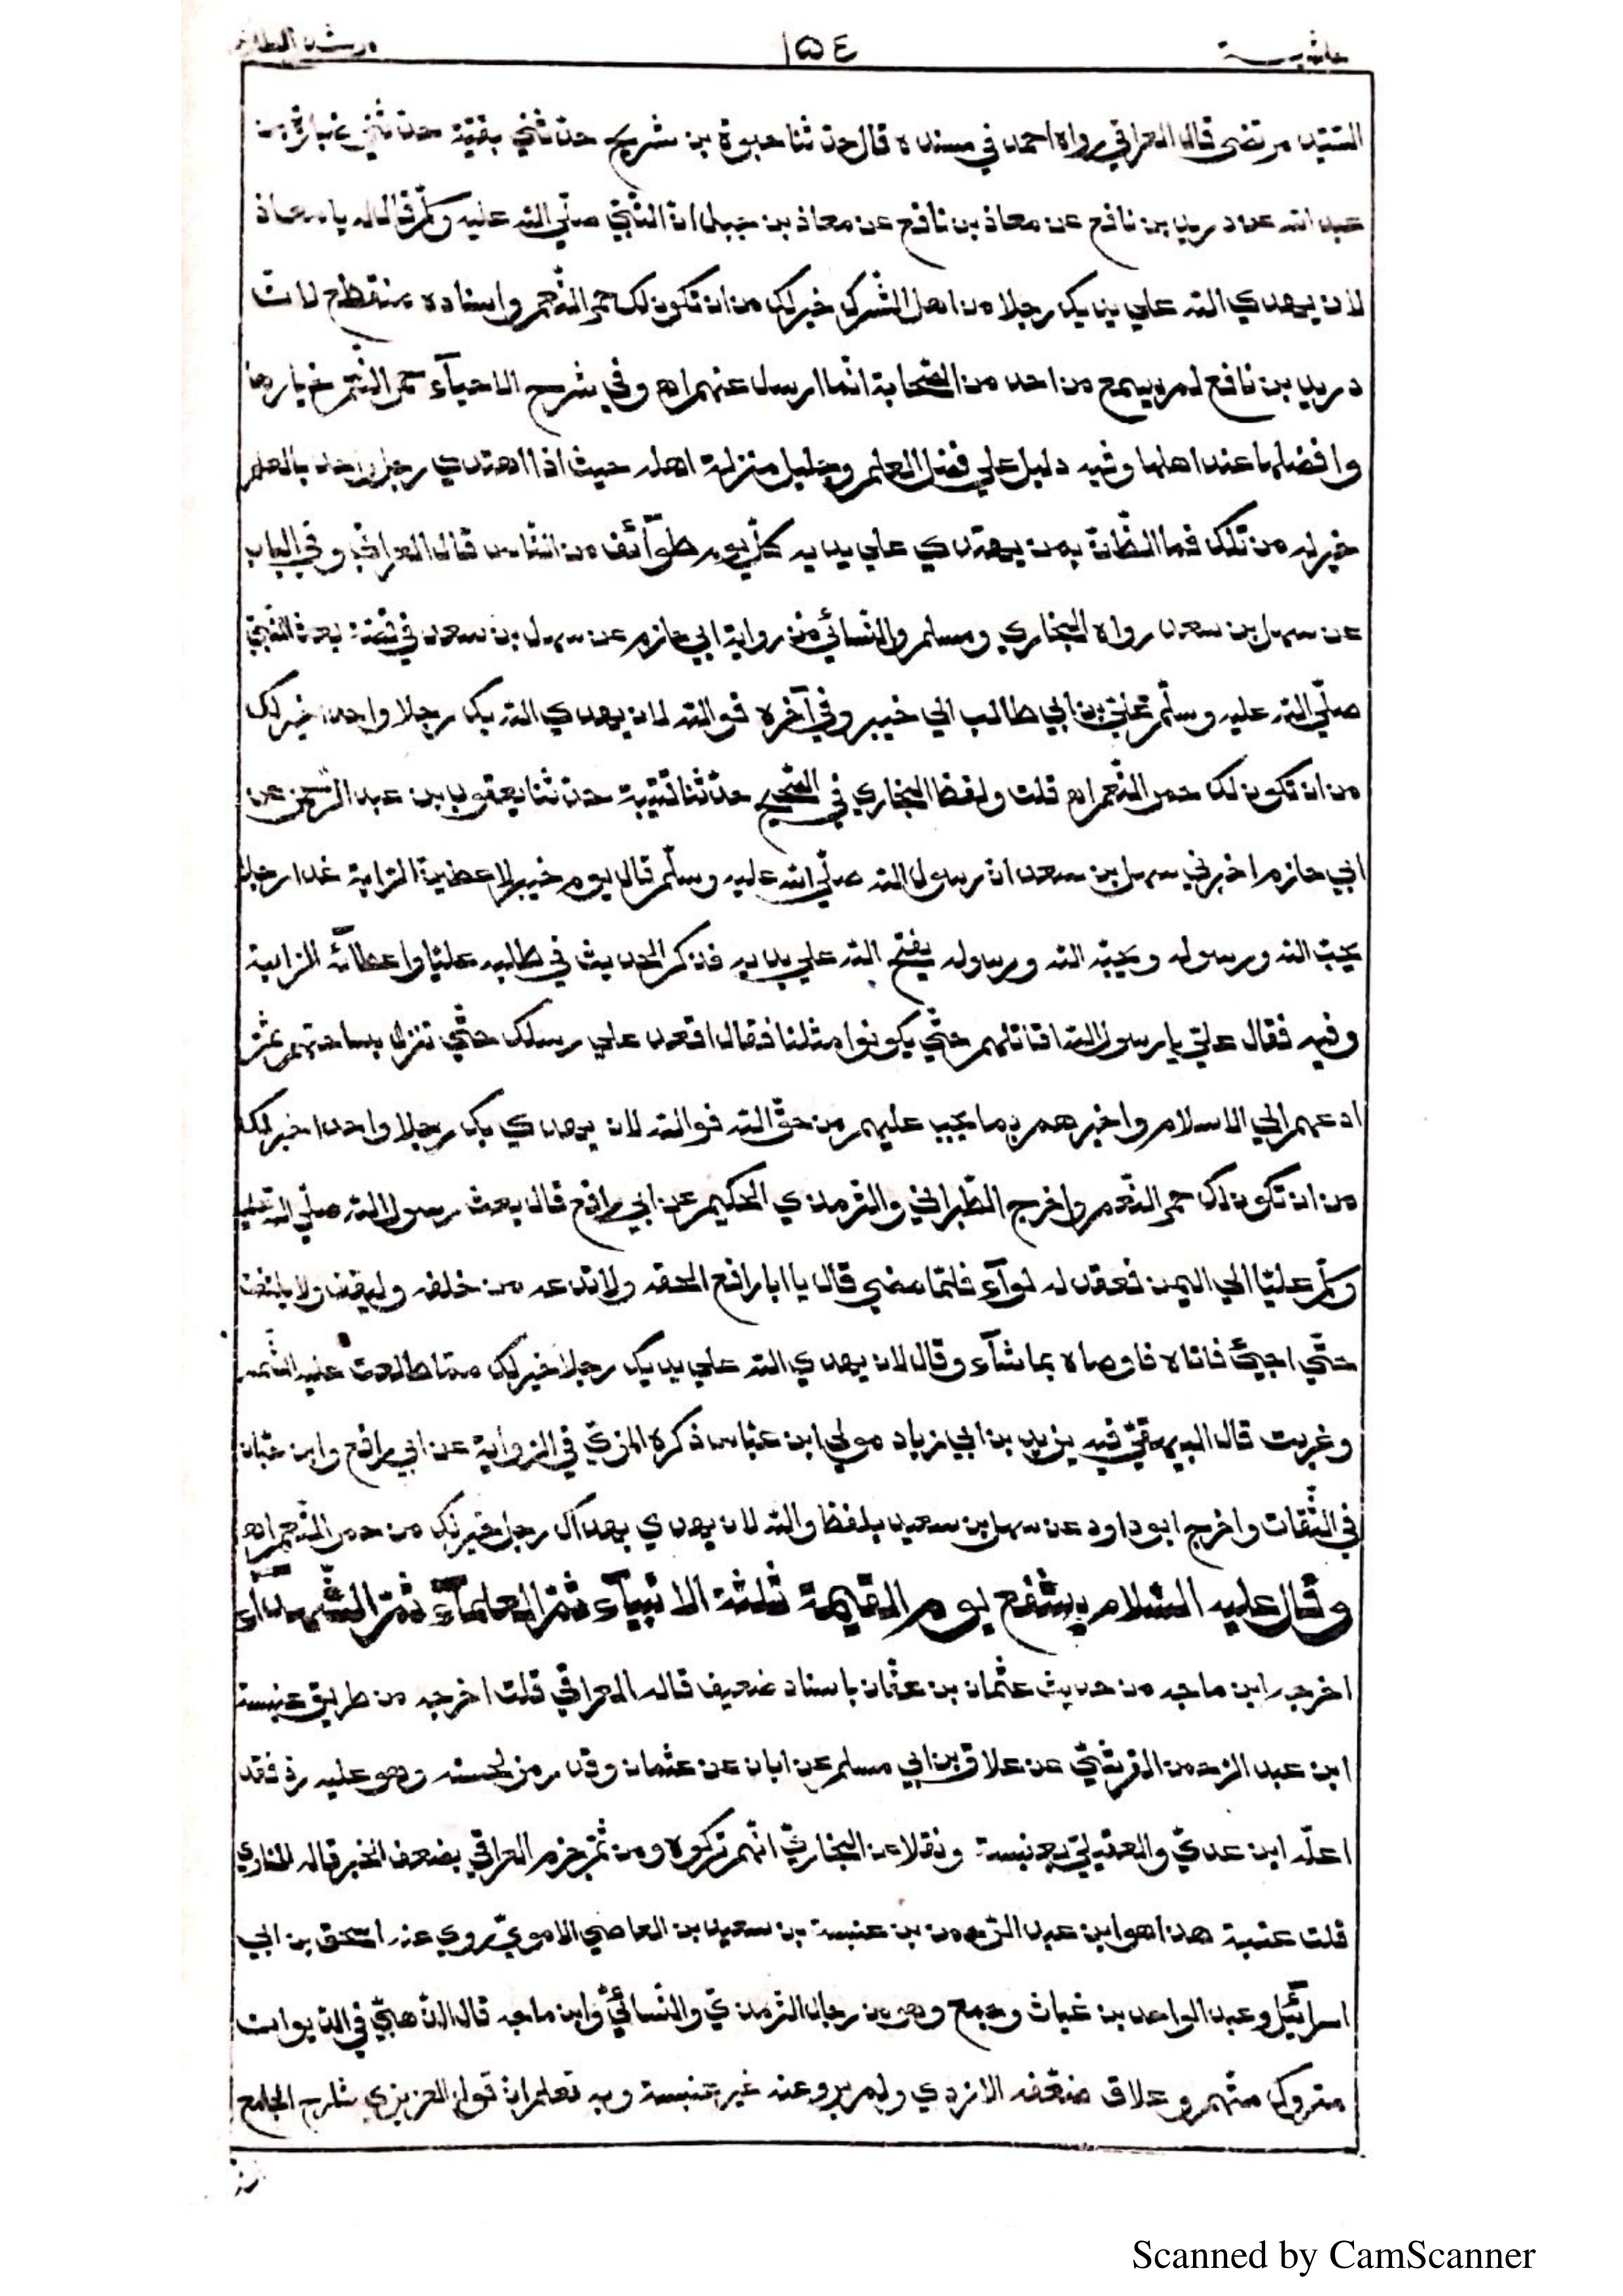 حاشية ١٥٤ مرشد الطلاب
السّيّد مرتضى قال العراقي رواه احمد في مسنده قال حدّثنا حيوة بن شريح حدّثني بقيّة حدّثني ضبارة بن
عبد الله عن دريد بن نافع عن معاذ بن نافع عن معاذ بن جبل انّ النّبيّ صلّي الله عليه وسلّم قال له يا معاذ
لان يهدي الله علي يديك رجلا من اهل الشّرك خير لك من ان تكون لك حمر النّعم واسناده منقطع لانّ
دريد بن نافع لم يسمع من احد من الصّحابة انّما ارسل عنهم اه وفي شرح الاحيآء حمر النّعم خيارها
وافضلها عند اهلها وفيه دليل علي فضل العلم وجليل منزلة اهله حيث اذا اهتدي رجل واحد بالعلم
خير له من تلك فما الظّانّ بمن يهتدي علي يديه كلّ يوم طوآئف من النّاس قال العراقي وفي الباب
عن سهل بن سعد رواه البخاري ومسلم والنّسائي من رواية ابي حازم عن سهل بن سعد في قصّة بعث النّبيّ
صلّي الله عليه وسلّم عليّ بن ابي طالب الي خيبر وفي آخره فوالله لان يهدي الله بك رجلا واحدا خير لك
من ان تكون لك حمر النّعم اه قلت ولفظ البخاري في الصّحيح حدّثنا قتيبة حدّثنا يعقوب بن عبد الرّحمن عن
ابي حازم اخبرني سهل بن سعد انّ رسول الله صلّي الله عليه وسلّم قال يوم خيبر لاعطينّ الرّاية غدا رجلا
يحبّ الله ورسوله ويحبّه الله ورسوله يفتح الله علي يديه فذكر الحديث في طلبه عليّا واعطائه الرّاية
وفيه فقال عليّ يا رسول الله اقاتلهم حتّي يكونوا مثلنا فقال اقعد علي رسلك حتّي تنزل بساحتهم ثمّ
ادعهم الي الاسلام واخبرهم بما يجب عليهم من حقّ الله فوالله لان يهدي بك رجلا واحدا خير لك
من ان تكون لك حمر النّعم واخرج الطّبراني والترمذي الحكيم عن ابي رافع قال بعث رسول الله صلّي الله عليه
وسلّم عليّا الي اليمن فعقد له لوآء فلمّا مضي قال يا ابا رافع الحقه ولا تدعه من خلفه وليقف ولا يلتفت
حتّي اجيئ فاتاه فاوصاه بما شآء وقال لان يهدي الله علي يديك رجلا خير لك ممّا طلعت عليه الشّمس
وغربت قال البيهقيّ فيه يزيد بن ابي زياد مولي ابن عبّاس ذكره المزيّ في الرّواية عن ابي رافع وابن حبّان
في الثّقات واخرج ابو داود عن سهل بن سعيد بلفظ والله لان يهدي بهداك رجل خير لك من حمر النّعم اه
وقال عليه السّلام يشفع يوم القيٰمة ثلثة الانبيآء ثمّ العلمآء ثمّ الشّهدآء
اخرجه ابن ماجه من حديث عثمان بن عفّان باسناد ضعيف قاله العراقي قلت اخرجه من طريق عنبسة
ابن عبد الرّحمن القرشيّ عن علاق بن ابي مسلم عن ابان عن عثمان وقد رمز لحسنه وهو عليه رد فقد
اعلّه ابن عديّ والعقيليّ بعنبسة ونقلا عن البخاريّ انّهم تركوه ومن ثمّ جزم العراقي بضعف الخبر قاله المناوي
قلت عنبسة هذا هو ابن عبد الرّحمن بن عنبسة بن سعيد بن العاصي الامويّ روي عنه اسحق بن ابي
اسرآئيل وعبد الواحد بن غياث وجمع وهو من رجال الترمذيّ والنّسائيّ وابن ماجه قال الذّهبيّ في الدّيوان
متروك متّهم وعلاق ضعّفه الازدي ولم يرو عنه غير عنبسة وبه تعلم انّ قول العزيزي شارح الجامع
Scanned by CamScanner